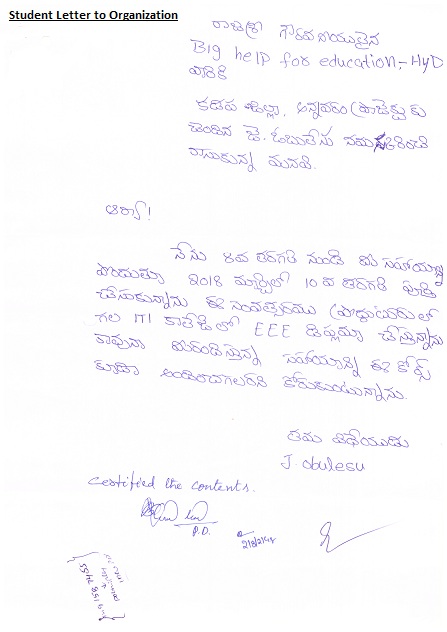 Student Letter to Organization
రాజశ్రీ గౌరవనీయులైన
Big help for education, HYD
వారికి
కడప జిల్లా, అన్నవరం ప్రాజెక్టుకు
చెందిన జె. ఓబులేసు నమస్కరించి
రాసుకున్న మనవి.
ఆర్యా!
నేను 8వ తరగతి నుండి మీ సహాయాన్ని
పొందుతూ 2018 మార్చిలో 10వ తరగతి పూర్తి
చేసుకున్నాను ఈ సంవత్సరము ప్రొద్దుటూరులో
గల ITI కాలేజీలో EEE డిప్లమా చేస్తున్నాను
కావునా మీరందిస్తున్న సహాయాన్ని ఈ కోర్స్
కూడా అందించగలరని కోరుకుంటున్నాను.
తమ విధేయుడు
J. obulesu
Certified the contents.
P.D.